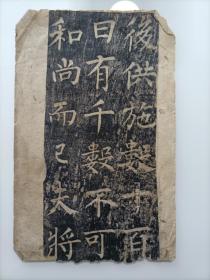 後供施數千百
日有千數不可
和尚而已夫將